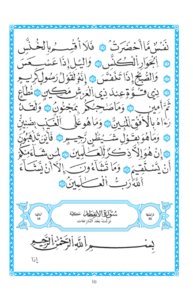 نَفْسٌ مَّا أَحْضَرَتْ ۝ فَلَا أُقْسِمُ بِالْخُنَّسِ
۝ الْجَوَارِ الْكُنَّسِ ۝ وَاللَّيْلِ إِذَا عَسْعَسَ
۝ وَالصُّبْحِ إِذَا تَنَفَّسَ ۝ إِنَّهُ لَقَوْلُ رَسُولٍ كَرِيمٍ
۝ ذِي قُوَّةٍ عِندَ ذِي الْعَرْشِ مَكِينٍ ۝ مُّطَاعٍ
ثَمَّ أَمِينٍ ۝ وَمَا صَاحِبُكُم بِمَجْنُونٍ ۝ وَلَقَدْ
رَآهُ بِالْأُفُقِ الْمُبِينِ ۝ وَمَا هُوَ عَلَى الْغَيْبِ بِضَنِينٍ
۝ وَمَا هُوَ بِقَوْلِ شَيْطَانٍ رَّجِيمٍ ۝ فَأَيْنَ تَذْهَبُونَ
۝ إِنْ هُوَ إِلَّا ذِكْرٌ لِّلْعَالَمِينَ ۝ لِمَن شَاءَ مِنكُمْ
أَن يَسْتَقِيمَ ۝ وَمَا تَشَاءُونَ إِلَّا أَن يَشَاءَ
اللَّهُ رَبُّ الْعَالَمِينَ ۝
سُورَةُ الْانفِطَارِ مَكِّيَّة
بِسْمِ اللَّهِ الرَّحْمَٰنِ الرَّحِيمِ
إِذَا